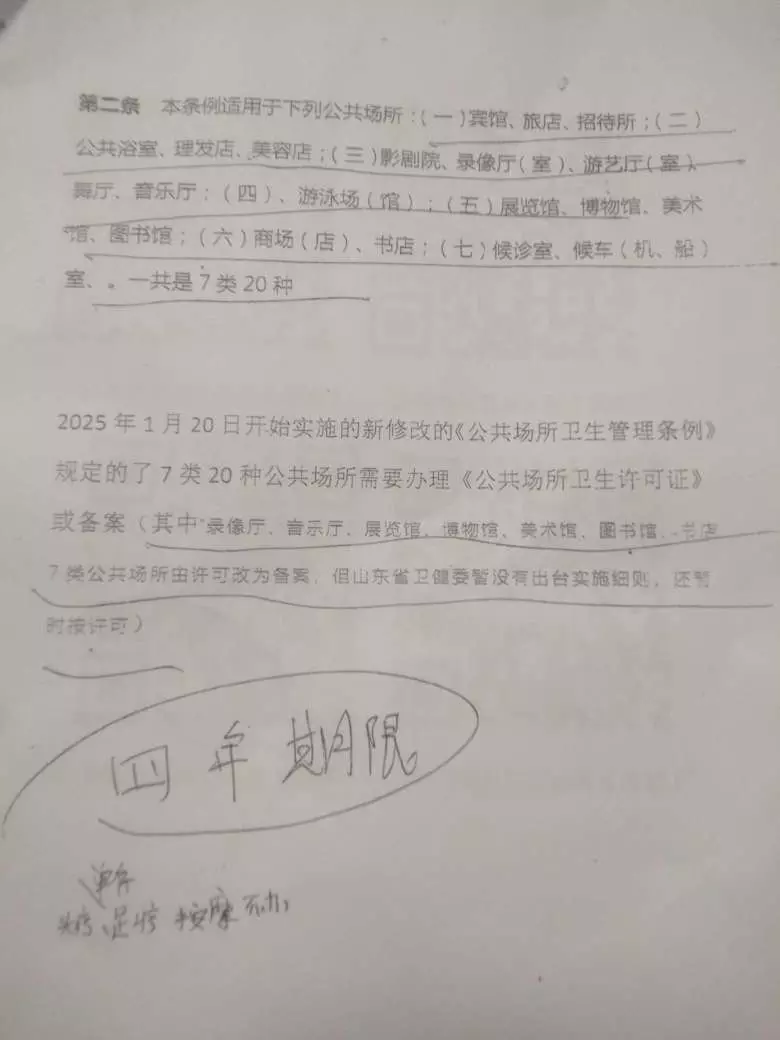 第二条 本条例适用于下列公共场所:(一)宾馆、旅店、招待所;(二)
公共浴室、理发店、美容店;(三)影剧院、录像厅(室)、游艺厅(室)、
舞厅、音乐厅;(四)、游泳场(馆);(五)展览馆、博物馆、美术
馆、图书馆;(六)商场(店)、书店;(七)候诊室、候车(机、船)
室、。一共是7类20种
2025年1月20日开始实施的新修改的《公共场所卫生管理条例》
规定的了7类20种公共场所需要办理《公共场所卫生许可证》
或备案(其中录像厅、音乐厅、展览馆、博物馆、美术馆、图书馆、书店
7类公共场所由许可改为备案,但山东省卫健委暂没有出台实施细则,还暂
时按许可)
四年期限
足疗 按摩